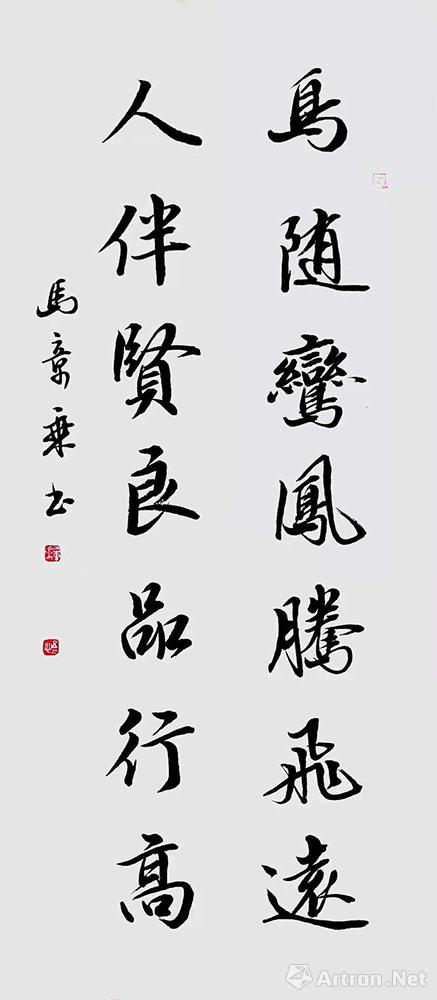 鳥随鸞鳳騰飛遠
人伴賢良品行高
馬章乗书
Artron.Net